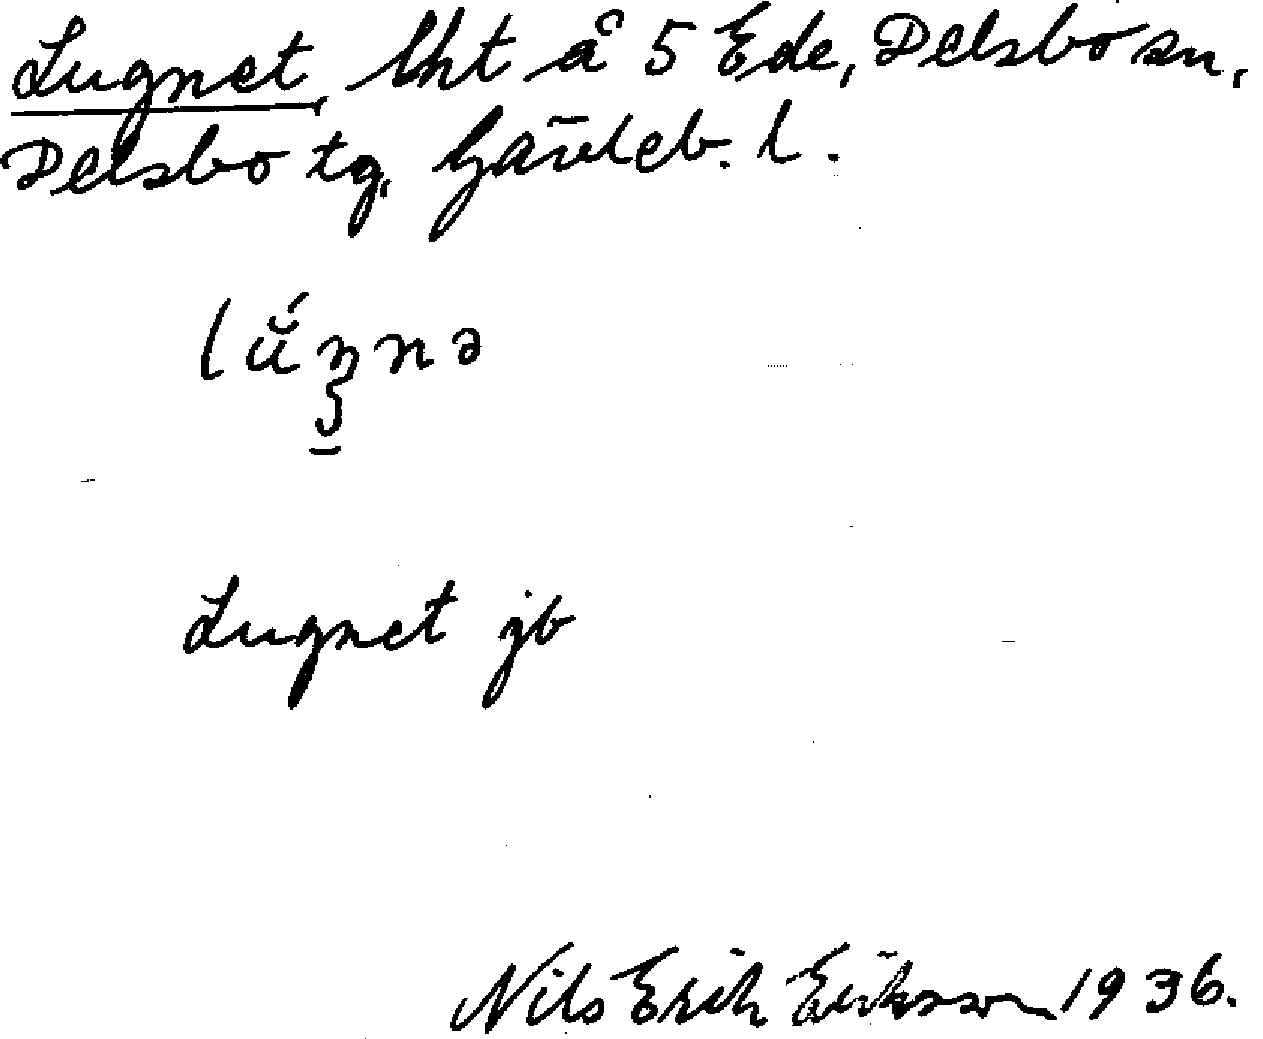 Lugnet, lht å 5 Ede, Delsbo sn,
Delsbo tg, Gävleb. l.
Lugnet jb
Nils Erik Eriksson 1936.